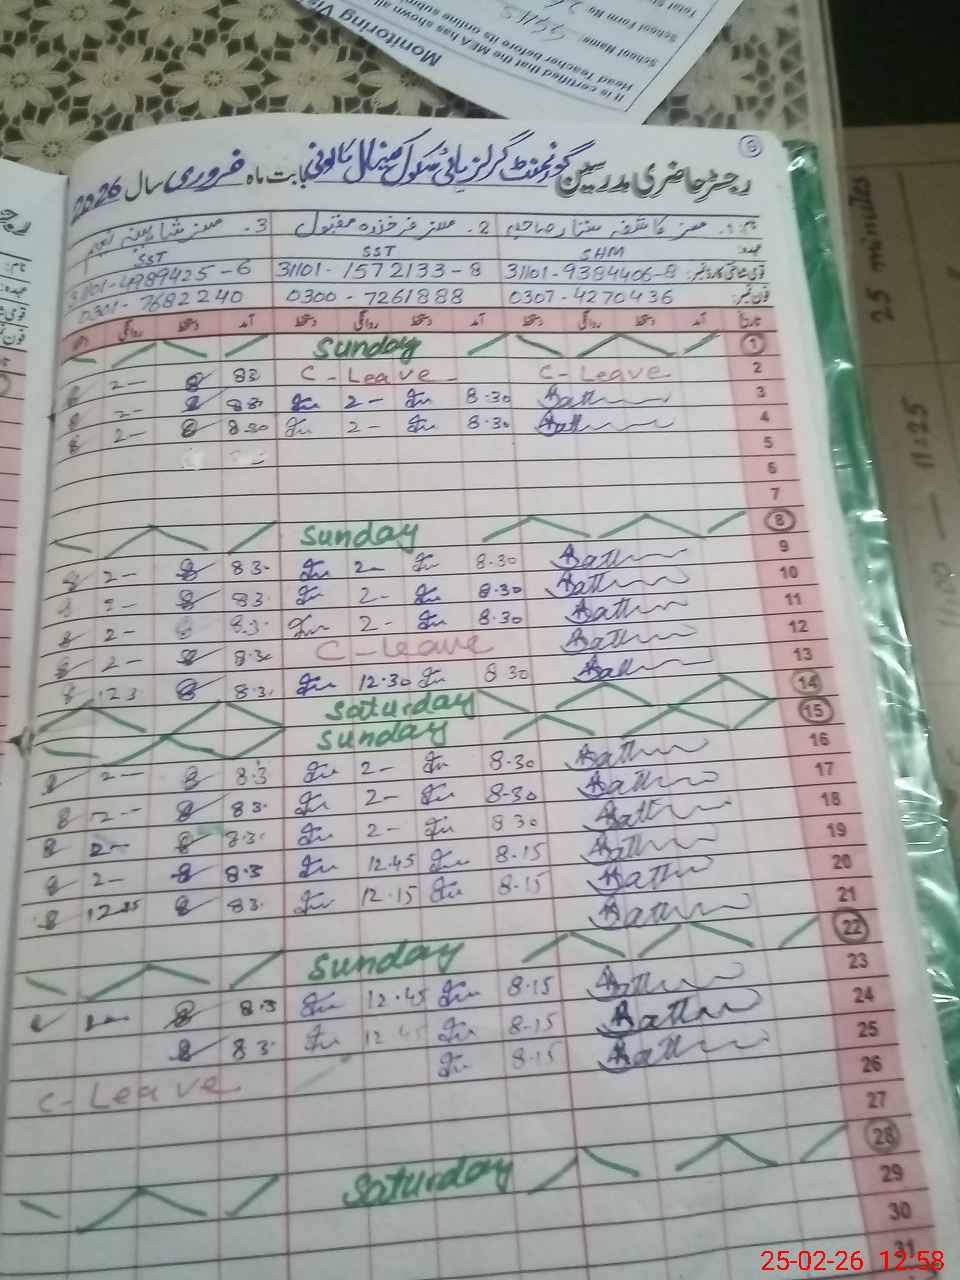 Monitoring Vis
It is certified that the MEA has shown all
Head Teacher before its online subm
School Name
School Form No
6
رجسٹر حاضری مدرسین گورنمنٹ گرلز ہائی سکول کینال کالونی بابت ماہ فروری سال 2026
نام: 1. مسز عاشقہ ستار صاحبہ 2. مسز فرخندہ مقبول 3. مسز شاہینہ نعیم
عہدہ: SHM SST SST
قومی شناختی کارڈ نمبر: 31101-9384406-8 31101-1572133-8 31101-4989425-6
فون نمبر: 0307-4270436 0300-7261888 0301-7682240
تاریخ آمد دستخط روانگی دستخط آمد دستخط روانگی دستخط آمد دستخط روانگی
1 Sunday
2 C-Leave C-Leave 83 2-
3 8.30 2- 83. 2-
4 8.30 2- 8.30 2-
5
6
7
8 Sunday
9 8.30 2- 83. 2-
10 8.30 2- 83. 2-
11 8.30 2- 8.3. 2-
12 C-Leave 8.30 2-
13 8 30 12.30 8.3. 123
14 Saturday
15 Sunday
16 8.30 2- 8.3 2-
17 8.30 2- 83. 2-
18 8 30 2- 8.3. 2-
19 8.15 12.45 8.3 2-
20 8.15 12.15 83.
21
22 Sunday
23 8.15 12.45 8.3
24 8.15 12 45 83.
25 8.15 C-Leave
26
27
28 Saturday
29
30
31
25 minutes
11:25
25-02-26 12:58